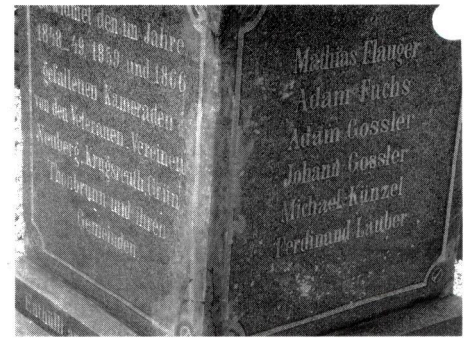 den im Jahre
1848_49, 1859 und 1866
gefallenen Kameraden
von den Veteranen-Vereinen
Neuberg, Krugsreuth, Grün
Thonbrunn und ihren
Gemeinden
Mathias Flauger
Adam Fuchs
Adam Gossler
Johann Gossler
Michael Künzel
Ferdinand Lauber